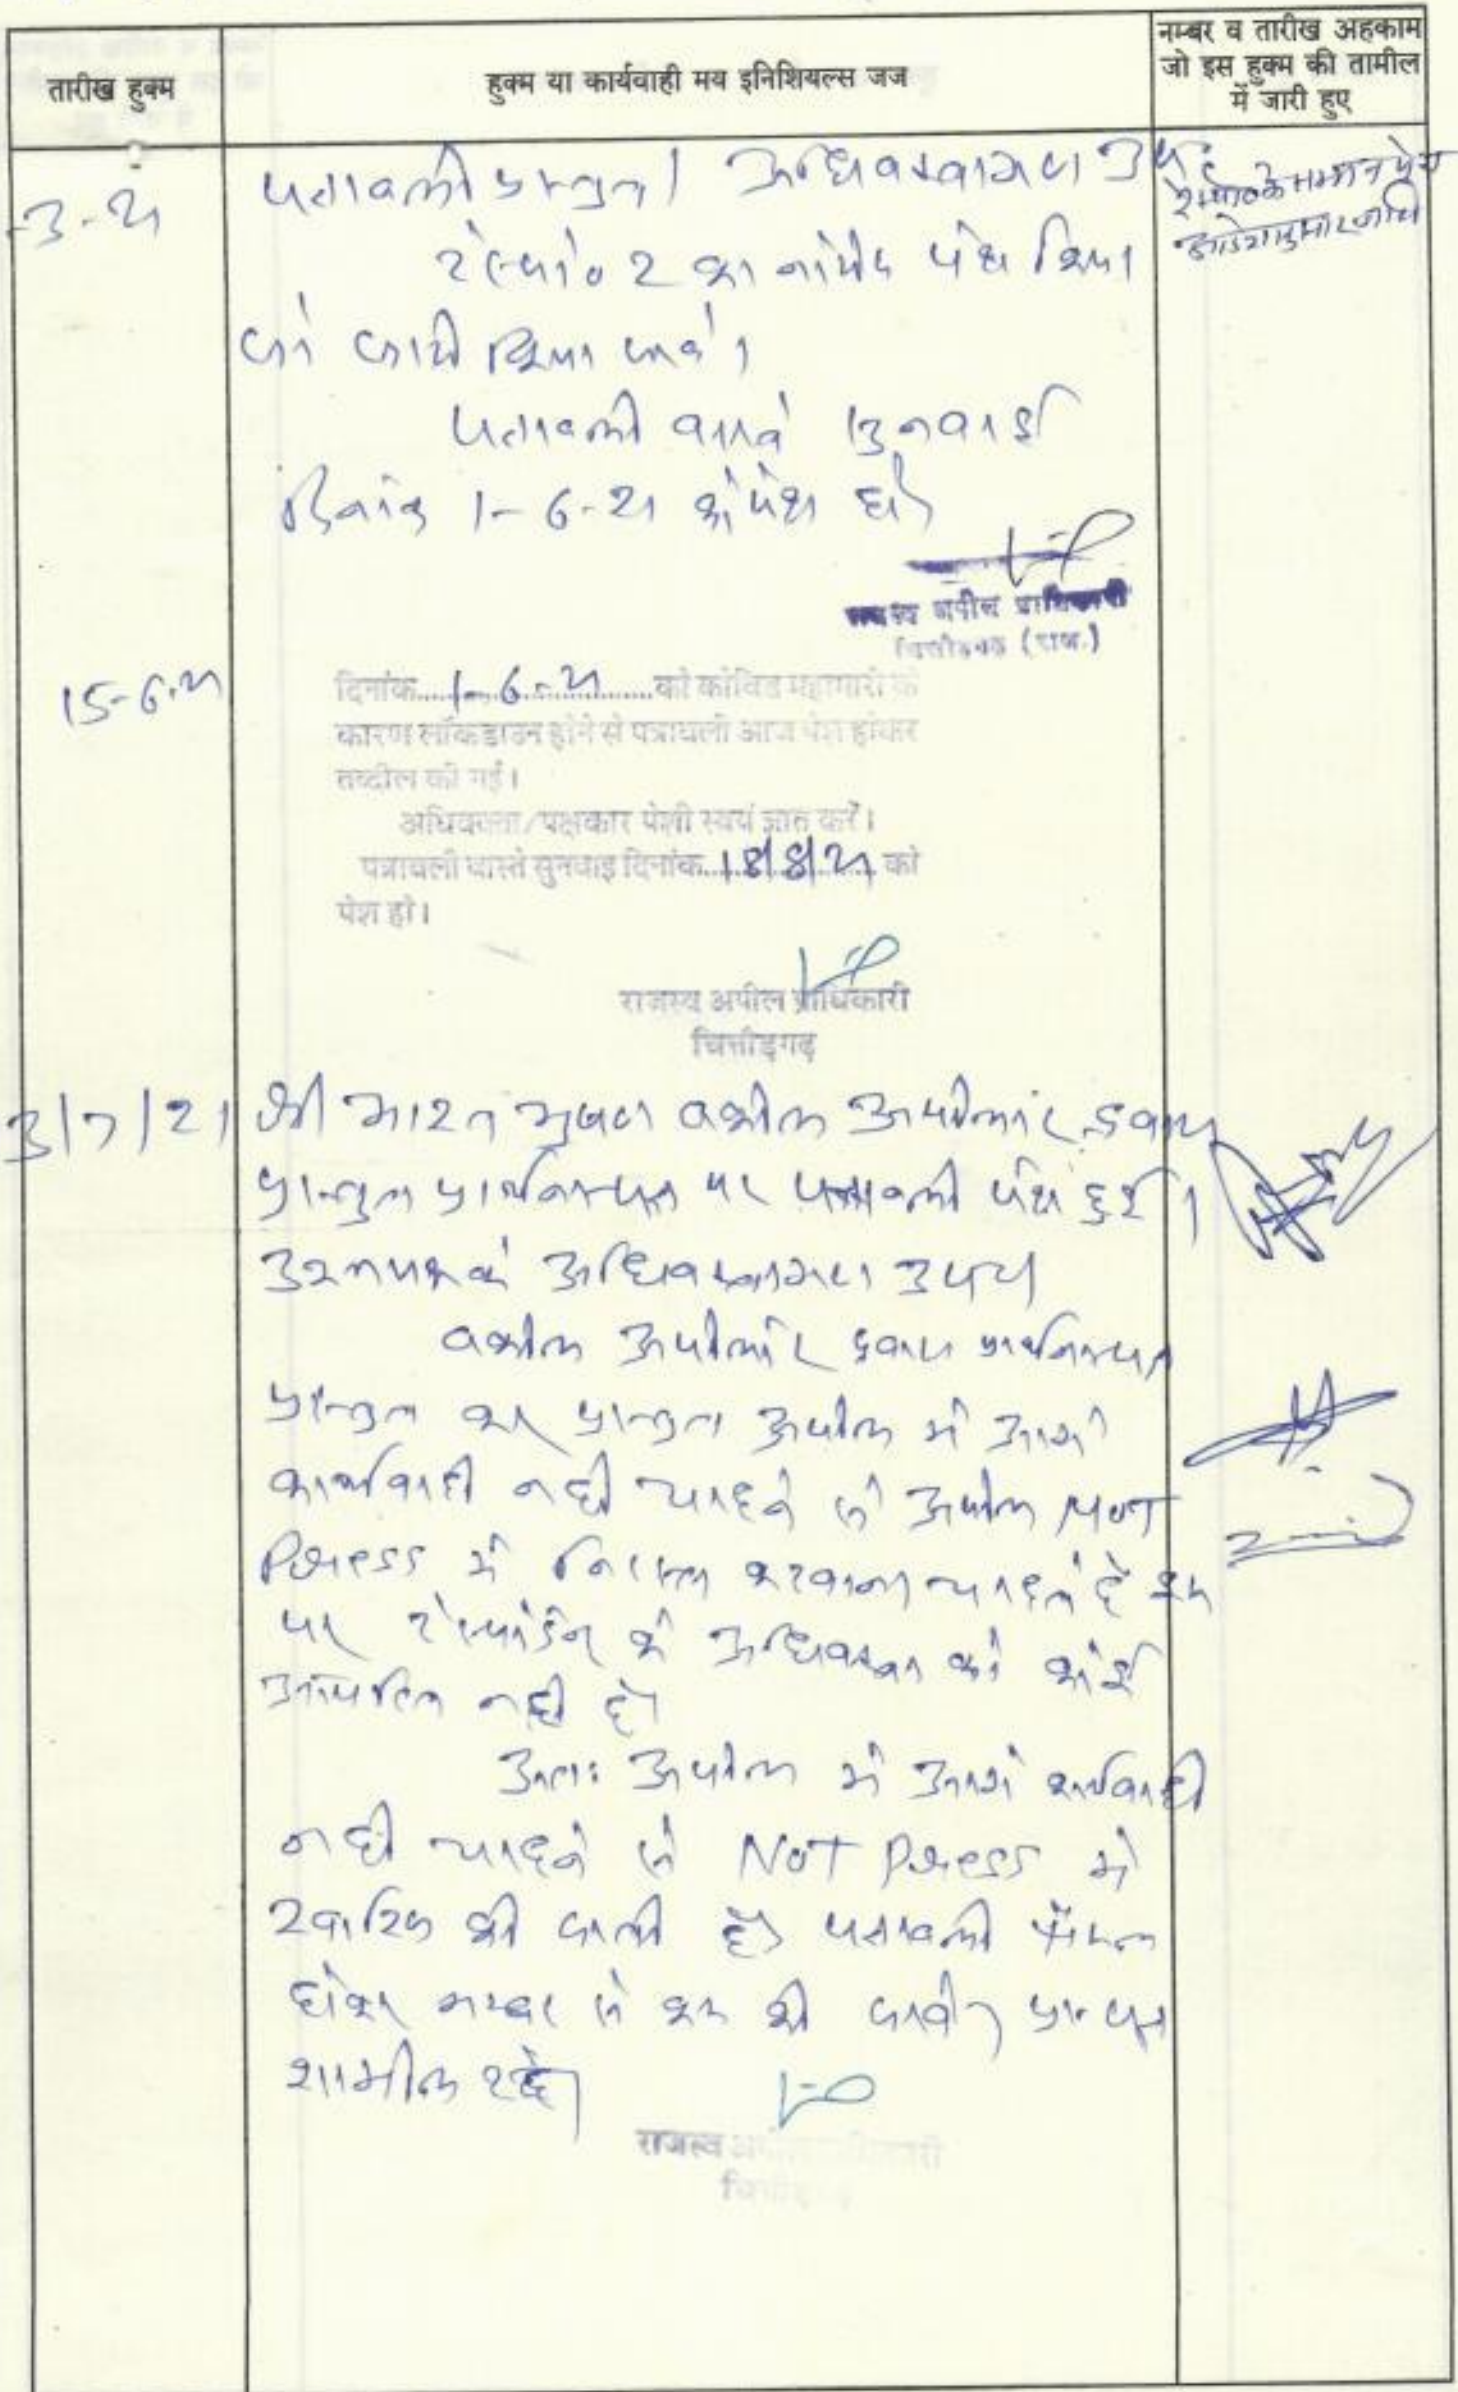 तारीख हुक्म
हुक्म या कार्यवाही मय इनिशियल्स जज
नम्बर व तारीख अहकाम
जो इस हुक्म की तामील
में जारी हुए
-3-21
पत्रावली प्रस्तुत। अधिवक्तागण उप.
रेस्पो० 2 का नोटिस पेश किया
जो जारी किया जावे।
पत्रावली वास्ते सुनवाई
दिनांक 1-6-21 को पेश हो
अपील प्राधिकारी
(राज.)
15-6-21
दिनांक 1-6-21 को कोविड महामारी के
कारण लॉकडाउन होने से पत्रावली आज पेश होकर
तब्दील की गई।
अधिवक्ता/पक्षकार पेशी स्वयं ज्ञात करें।
पत्रावली वास्ते सुनवाई दिनांक 18/8/21 को
पेश हो।
राजस्व अपील प्राधिकारी
चित्तौड़गढ़
3/7/21
श्री भारत भुषण वकील अपीलांट द्वारा
प्रस्तुत प्रार्थनापत्र पर पत्रावली पेश हुई।
उभयपक्ष के अधिवक्तागण उप०
वकील अपीलांट द्वारा प्रार्थनापत्र
प्रस्तुत कर प्रस्तुत अपील में आगे
कार्यवाही नही चाहने से अपील NOT
Press में निरस्त करवाना चाहते है इस
पर रेस्पोडेन्ट के अधिवक्ता को कोई
आपत्ति नही है।
अतः अपील में आगे कार्यवाही
नही चाहने से NOT Press में
खारिज की जाती है। पत्रावली फैसल
होकर नम्बर से कम की जावे।
शामील रहे।
राजस्व